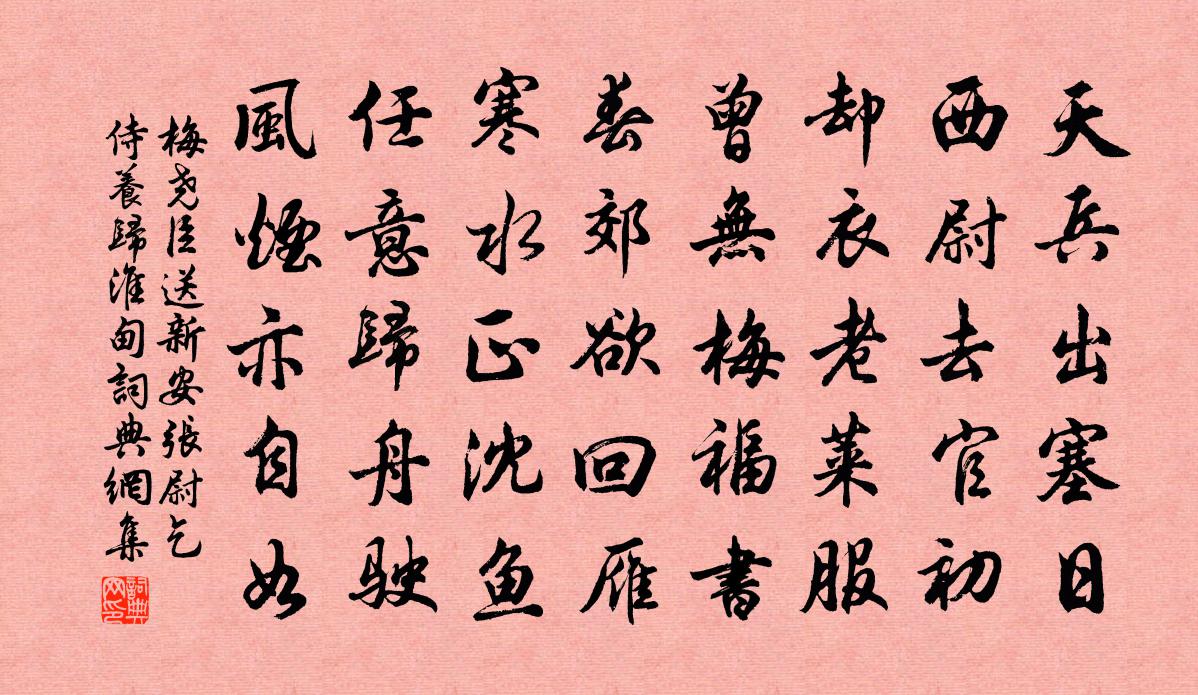 天兵出塞日
西尉去官初
却衣老莱服
曾無梅福書
春郊欲回雁
寒水正沈魚
任意歸舟駛
風煙亦自如
梅尧臣送新安張尉乞
侍養歸淮甸詞典網集
詞典網印